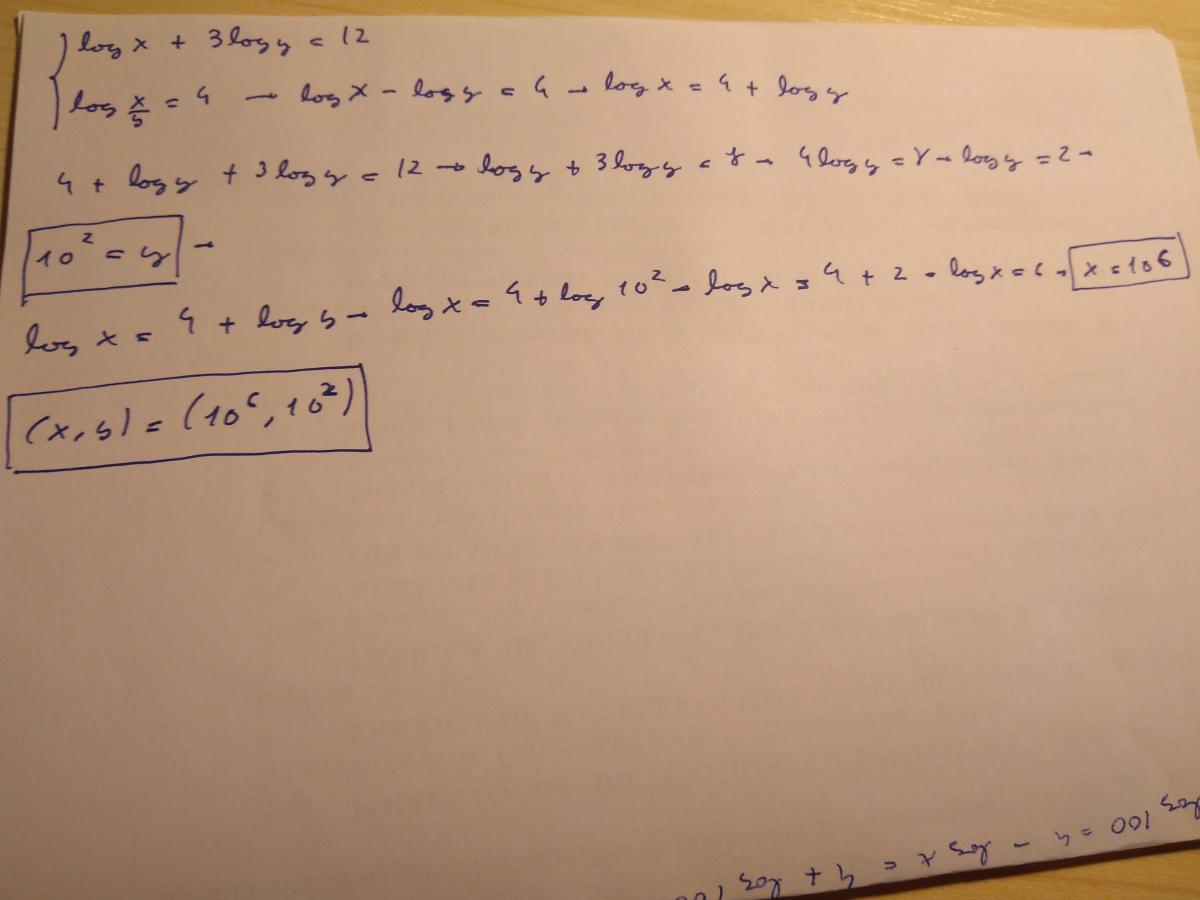 log x + 3 log y = 12
log x/y = 4 → log x - log y = 4 → log x = 4 + log y
4 + log y + 3 log y = 12 → log y + 3 log y = 8 → 4 log y = 8 → log y = 2 →
10² = y →
log x = 4 + log y → log x = 4 + log 10² → log x = 4 + 2 → log x = 6 → x = 10⁶
(x, y) = (10⁶, 10²)
log 100 = 4 → log x = 4 + log 100